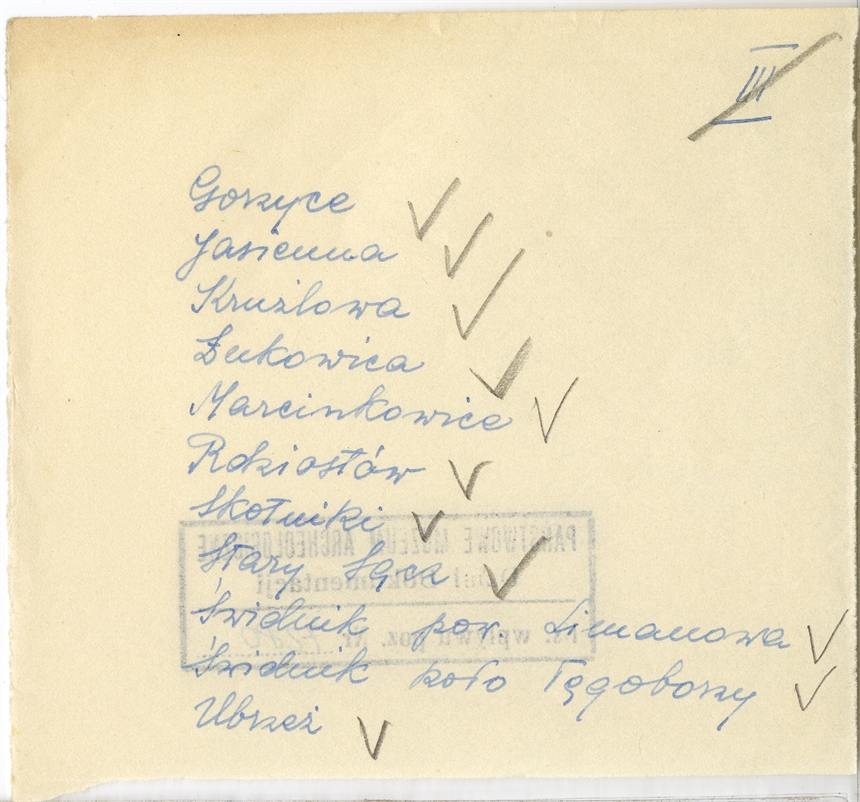 III
Gorzyce
Jasienna
Krużlowa
Łukowica
Marcinkowice
Rdziostów
Skotniki
Stary Sącz
Świdnik pow. Limanowa
Świdnik koło Tęgoborzy
Ubrzeż
PAŃSTWOWE MUZEUM ARCHEOLOGICZNE
Dział Dokumentacji
Ks. wpływu poz. Nr